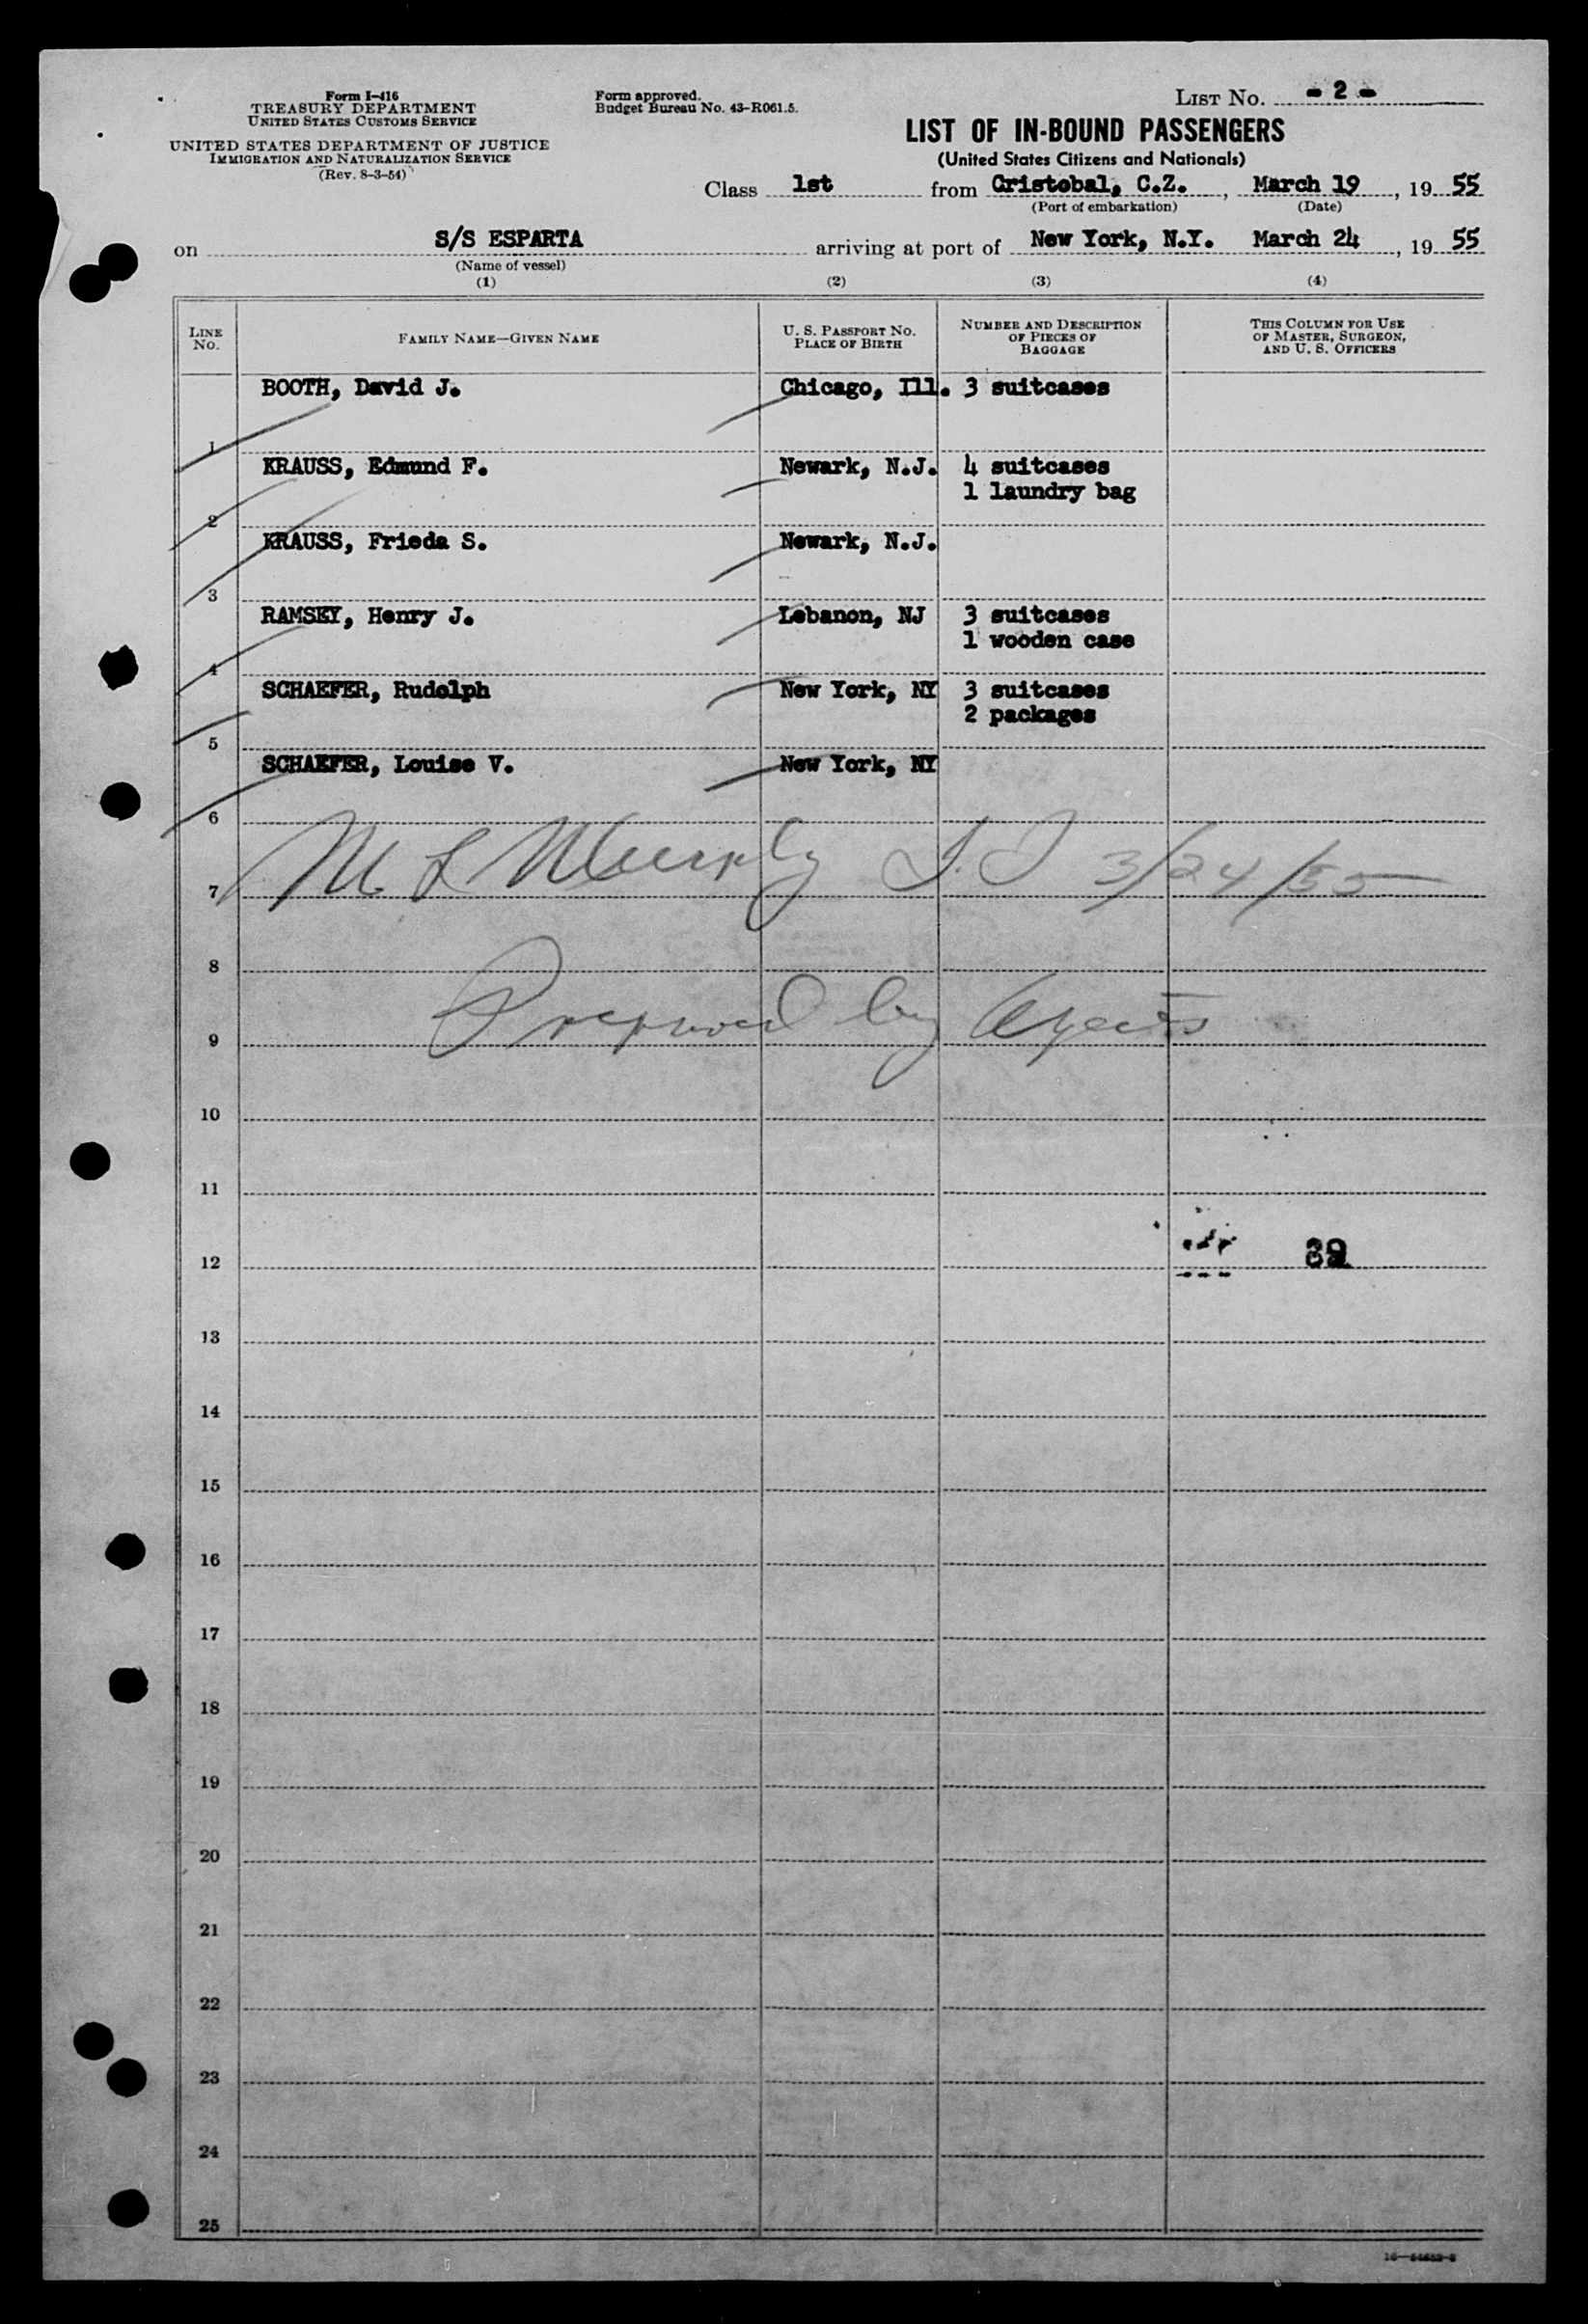 Form I-416
TREASURY DEPARTMENT
UNITED STATES CUSTOMS SERVICE
UNITED STATES DEPARTMENT OF JUSTICE
IMMIGRATION AND NATURALIZATION SERVICE
(Rev. 8-3-54)
Form approved.
Budget Bureau No. 43-R061.5.
LIST NO. - 2 -
LIST OF IN-BOUND PASSENGERS
(United States Citizens and Nationals)
Class 1st from Cristobal, C.Z., March 19, 19 55
(Port of embarkation) (Date)
on S/S ESPARTA arriving at port of New York, N.Y. March 24, 19 55
(Name of vessel)
(1) (2) (3) (4)
LINE NO.
FAMILY NAME—GIVEN NAME
U. S. PASSPORT NO.
PLACE OF BIRTH
NUMBER AND DESCRIPTION
OF PIECES OF
BAGGAGE
THIS COLUMN FOR USE
OF MASTER, SURGEON,
AND U. S. OFFICERS
BOOTH, David J. Chicago, Ill. 3 suitcases
1
KRAUSS, Edmund F. Newark, N.J. 4 suitcases
1 laundry bag
2
KRAUSS, Frieda S. Newark, N.J.
3
RAMSEY, Henry J. Lebanon, NJ 3 suitcases
1 wooden case
4
SCHAEFER, Rudolph New York, NY 3 suitcases
2 packages
5
SCHAEFER, Louise V. New York, NY
6
M L Murphy 3/24/55
7
8
Prepared by Agents
9
10
11
12 39
13
14
15
16
17
18
19
20
21
22
23
24
25